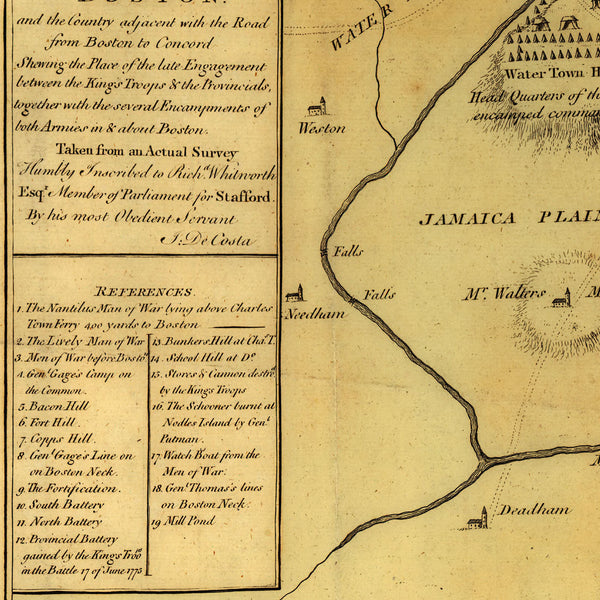 BOSTON.
and the Country adjacent with the Road
from Boston to Concord
Shewing the Place of the late Engagement
between the King's Troops & the Provincials,
together with the several Encampments of
both Armies in & about Boston.
Taken from an Actual Survey
Humbly Inscribed to Richd. Whitworth
Esqr. Member of Parliament for Stafford.
By his most Obedient Servant
J: De Costa
REFERENCES.
1. The Nantilus Man of War lying above Charles
Town Ferry 400 yards to Boston
2. The Lively Man of War
3. Men of War before Bostn.
4. Genl. Gage's Camp on
the Common.
5. Bacon Hill
6. Fort Hill.
7. Copps Hill.
8. Genl. Gage's Line on
on Boston Neck.
9. The Fortification.
10. South Battery
11. North Battery
12. Provincial Battery
gained by the Kings Troos.
in the Battle 17 of June 1775
13. Bunkers Hill at Chas. T.
14. School Hill at Do.
15. Stores & Cannon destroy.
by the Kings Troops
16. The Schooner burnt at
Nodles Island by Genl.
Putman.
17. Watch Boat from the
Men of War.
18. Genl. Thomas's lines
on Boston Neck.
19 Mill Pond
WATER
Water Town H
Head Quarters of th
encamped comma
Weston
JAMAICA PLAIN
Falls
Falls
Needham
Mr. Walters
M
Deadham